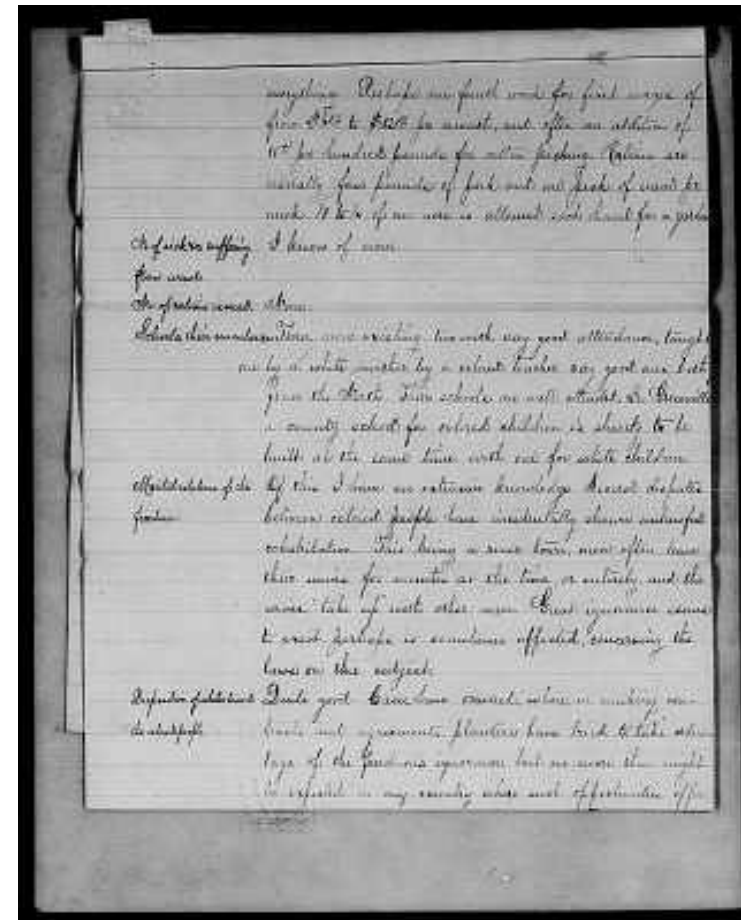 everything. Perhaps one fourth work for fixed wages of
from to per month, and often an addition of
per hundred pounds for cotton picking. Rations are
usually four pounds of pork and one peck of meal per
week. to of an acre is allowed each hand for a garden
No of suffering I know of none.
from want
No of rations issued. None.
Schools their number There were existing two with very good attendance, taught
one by a white by a colored teacher very good and both
from the North. These schools are well attended. In Greenville
a county school for colored children is shortly to be
built at the same time with one for white children
Marital relations of the Of this I have no extensive knowledge. Several disputes
freedmen between colored people have incidentally shown unlawful
cohabitation. This being a river town, men often leave
their wives for months at the time, or entirely, and the
wives take up with other men. Great ignorance seems
to exist, perhaps is sometimes affected, concerning the
laws on this subject.
Disposition of whites towards Quite good. Cases have occurred where in making con-
the colored people tracts and agreements, planters have tried to take advan-
tage of the freedmens ignorance, but no more than might
be expected in any country where such opportunities offer